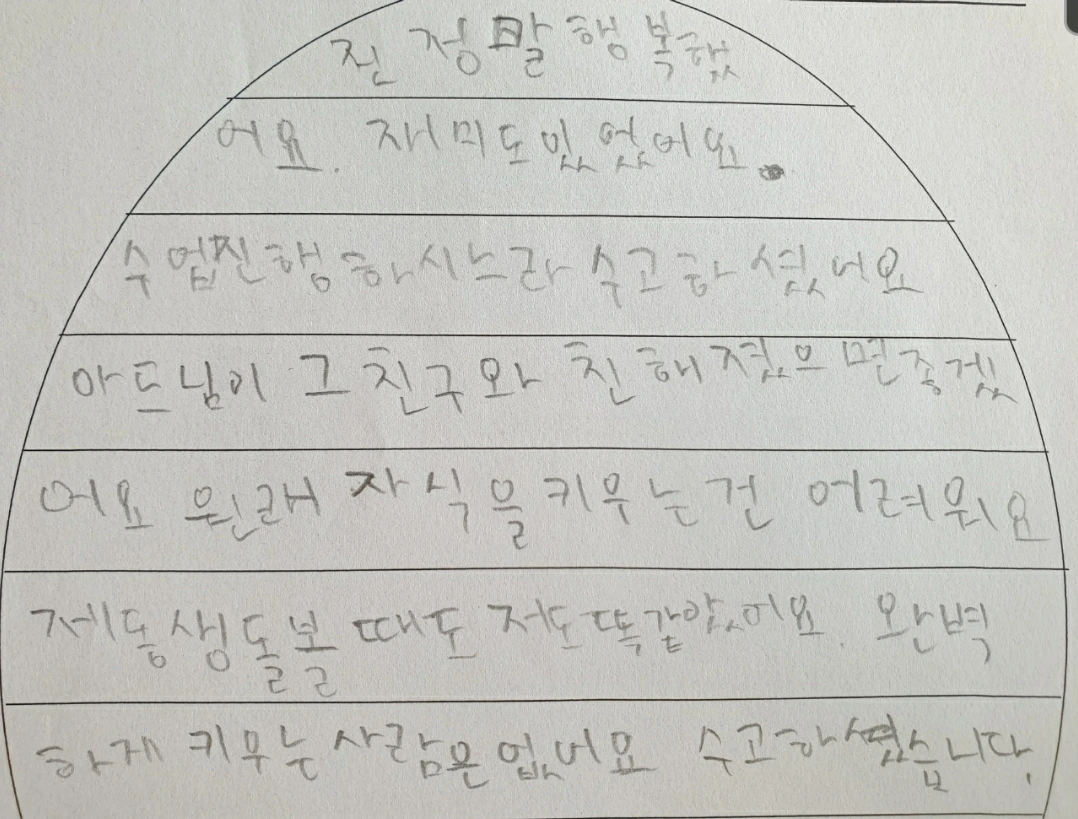 진 정말 행복했
어요. 재미도있었어요.
수업진행하시느라 수고하셨어요
아드님이 그 친구와 친해졌으면좋겠
어요 원래 자식을키우는건 어려워요
제동생돌볼 때도 저도똑같았어요. 완벽
하게 키우는사람은없어요 수고하셨습니다.